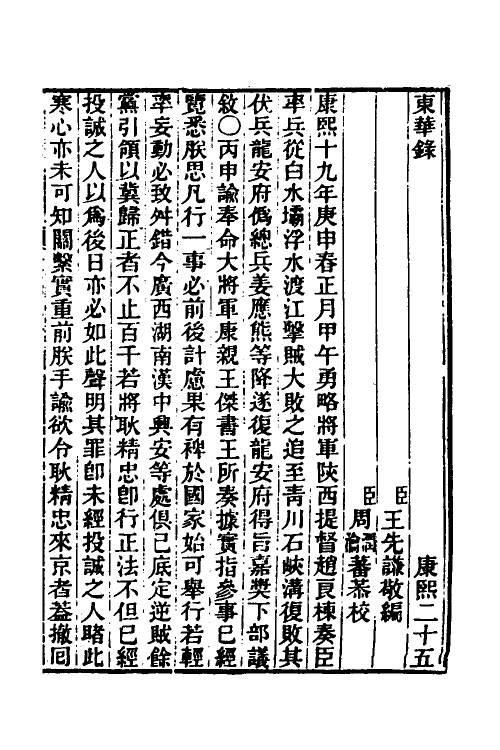 東華錄　康熙二十五
臣王先謙敬編
臣周潤蕃瀹蕃恭校
康熙十九年庚申春正月甲午勇略將軍陝西提督趙良棟奏臣
率兵從白水壩浮水渡江擊賊大敗之追至靑川石峽溝復敗其
伏兵龍安府僞總兵姜應熊等降遂復龍安府得旨嘉獎下部議
敘○丙申諭奉命大將軍康親王傑書王所奏據實指參事已經
覽悉朕思凡行一事必前後計慮果有裨於國家始可舉行若輕
率妄動必致舛錯今廣西湖南漢中興安等處俱已底定逆賊餘
黨引領以冀歸正者不止百千若將耿精忠卽行正法不但已經
投誠之人以爲後日亦必如此聲明其罪卽未經投誠之人睹此
寒心亦未可知關繫實重前朕手諭欲令耿精忠來京者葢撤回